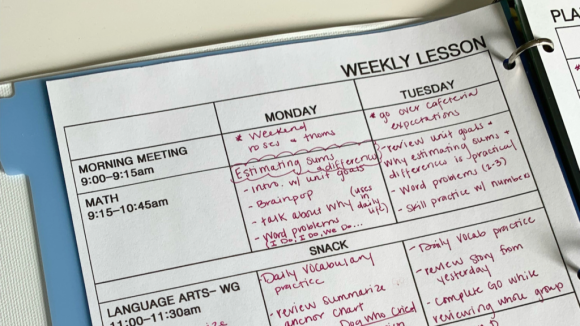 WEEKLY LESSON
PLA
MONDAY
TUESDAY
MORNING MEETING
9:00-9:15am
* Weekend
roses + thorns
* go over cafeteria
expectations
MATH
9:15-10:45am
Estimating sums
+ differences
- Intro. w/ unit goals
- Brainpop
- talk about why (uses in daily life)
- Word problems
(I Do, I Do, We Do...
- review unit goals +
why estimating sums +
difference is practical
- Word problems (2-3)
- Skill practice w/ number
SNACK
LANGUAGE ARTS- WG
11:00-11:30am
- Daily Vocabulary
practice
- review summarize
anchor chart
Dog Who Cried
- Daily Vocab practice
- review story from
yesterday
- complete GO while
reviewing whole group